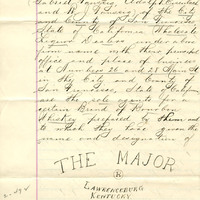 and Wm J. Casey of the City
and County of San Francisco
State of California, Wholesale
Liquor Dealers under a
firm name with their principal
office and place of business
at Numbers 26 and 27
in the City and County of
San Francisco, State of California
are the sole agents for a
certain Brand of Bourbon
Whiskey prepared by them and
to which they have given the
name and designation of
THE MAJOR
LAWRENCEBURG
KENTUCKY